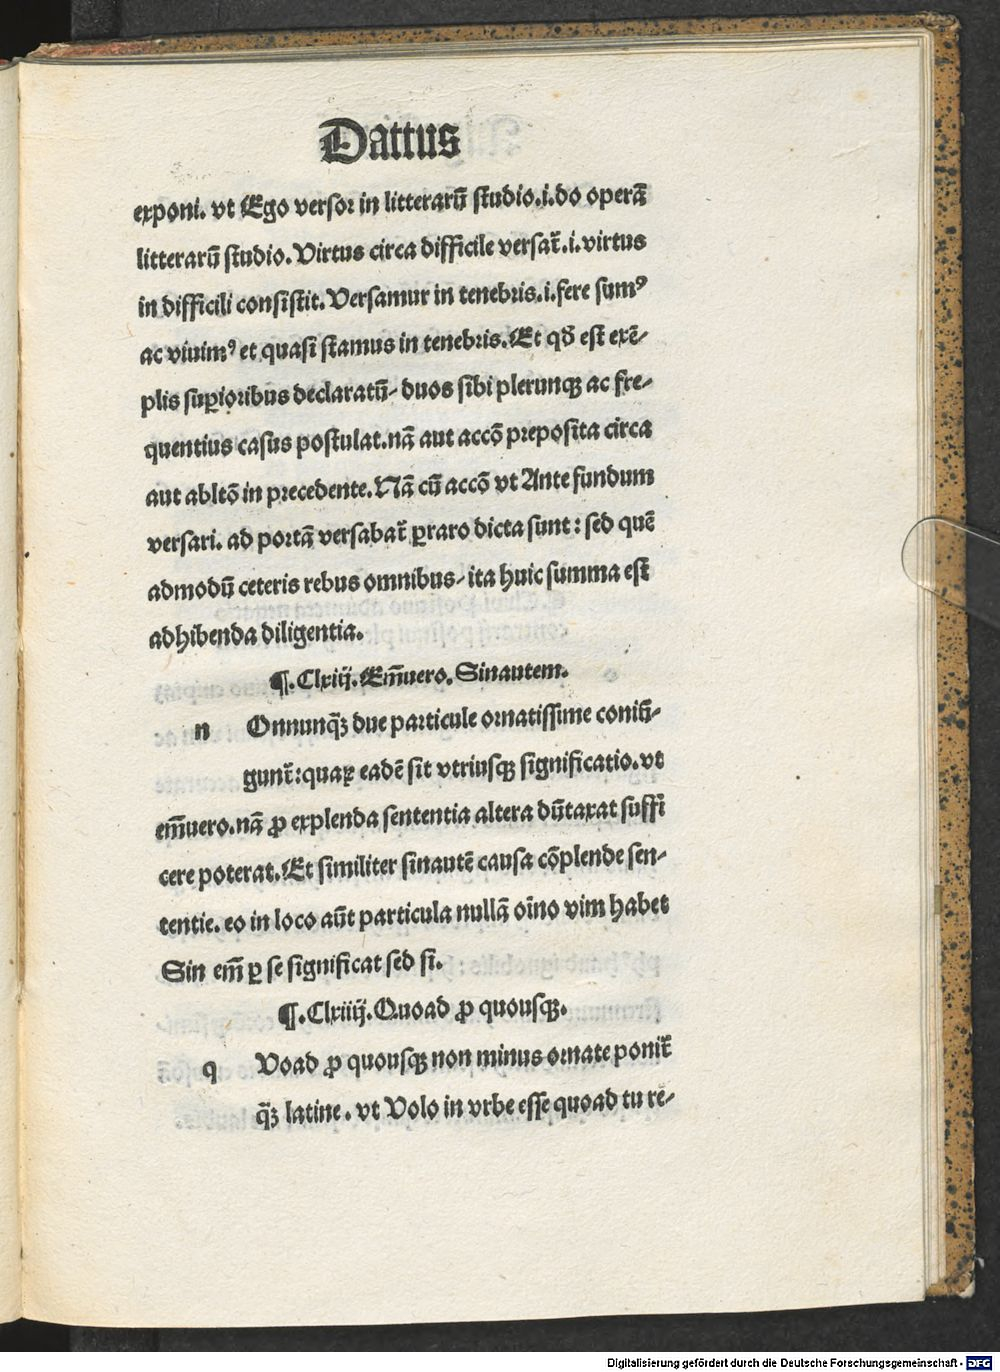 Dattus
exponi. vt Ego versor in litterarū studio.i.do operā
litterarū studio. Virtus circa difficile versat̄.i.virtus
in difficili consistit. Versamur in tenebris.i.fere sumꝰ
ac viuimꝰ et quasi stamus in tenebris. Et qđ est exē-
plis suꝑioribus declaratū/ duos sibi plerunqꝫ ac fre-
quentius casus postulat.nā aut accō preposita circa
aut abltō in precedente. Nā cū accō vt Ante fundum
versari. ad portā versabat̄ ꝑraro dicta sunt: sed quē
admodū ceteris rebus omnibus/ ita huic summa est
adhibenda diligentia.
¶.Clxiij. Em̄uero. Sinautem.
n Onnunqꝫ̄ due particule ornatissime coniū-
gunt̄:quaꝝ eadē sit vtriusqꝫ significatio. vt
em̄uero.nā ꝓ explenda sententia altera dūtaxat suffi
cere poterat. Et similiter sinautē causa cōplende sen-
tentie. eo in loco aūt particula nullā oīno vim habet
Sin em̄ ꝑ se significat sed si.
¶.Clxiiij. Quoad ꝓ quousqꝫ.
q Voad ꝓ quousqꝫ non minus ornate ponit̄
qꝫ̄ latine. vt Volo in vrbe esse quoad tu re-
Digitalisierung gefördert durch die Deutsche Forschungsgemeinschaft - DFG